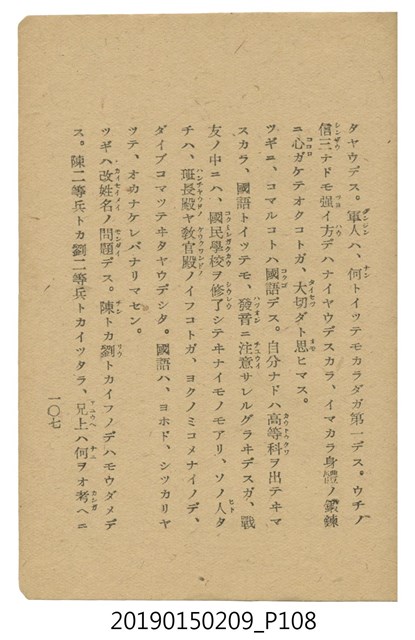 タヤウデス。軍人ハ、何トイツテモカラダガ第一デス。ウチノ
信三ナドモ强イ方デハナイヤウデスカラ、イマカラ身體ノ鍛鍊
ニ心ガケテオクコトガ、大切ダト思ヒマス。
ツギニ、コマルコトハ國語デス。自分ナドハ高等科ヲ出テヰマ
スカラ、國語トイツテモ、發音ニ注意サレルグラヰデスガ、戰
友ノ中ニハ、國民學校ヲ修了シテヰナイモノモアリ、ソノ人タ
チハ、班長殿ヤ敎官殿ノイフコトガ、ヨクノミコメナイノデ、
ダイブコマツテヰタヤウデシタ。國語ハ、ヨホド、シツカリヤ
ツテ、オカナケレバナリマセン。
ツギハ改姓名ノ問題デス。陳トカ劉トカイフノデハモウダメデ
ス。陳二等兵トカ劉二等兵トカイツタラ、兄上ハ何ヲオ考ヘニ
一〇七
20190150209_P108